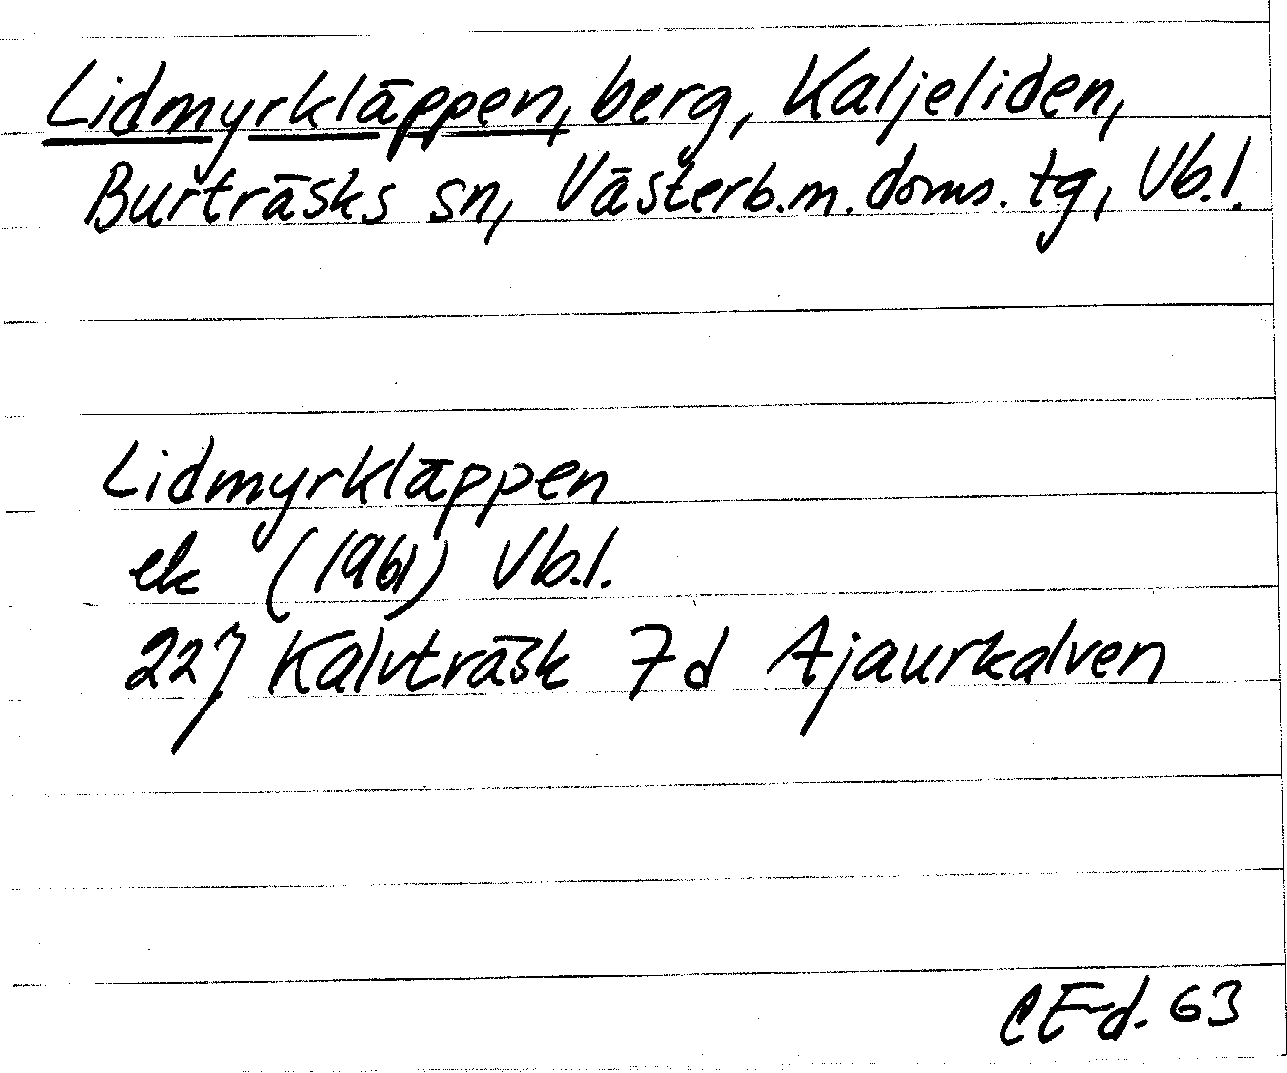 Lidmyrkläppen, berg, Kaljeliden,
Burträsks sn, Västerb.m. doms. tg, Vb.l.
Lidmyrkläppen
ek (1961) Vb.l.
22J Kalvträsk 7d Ajaurkalven
CE-d. 63